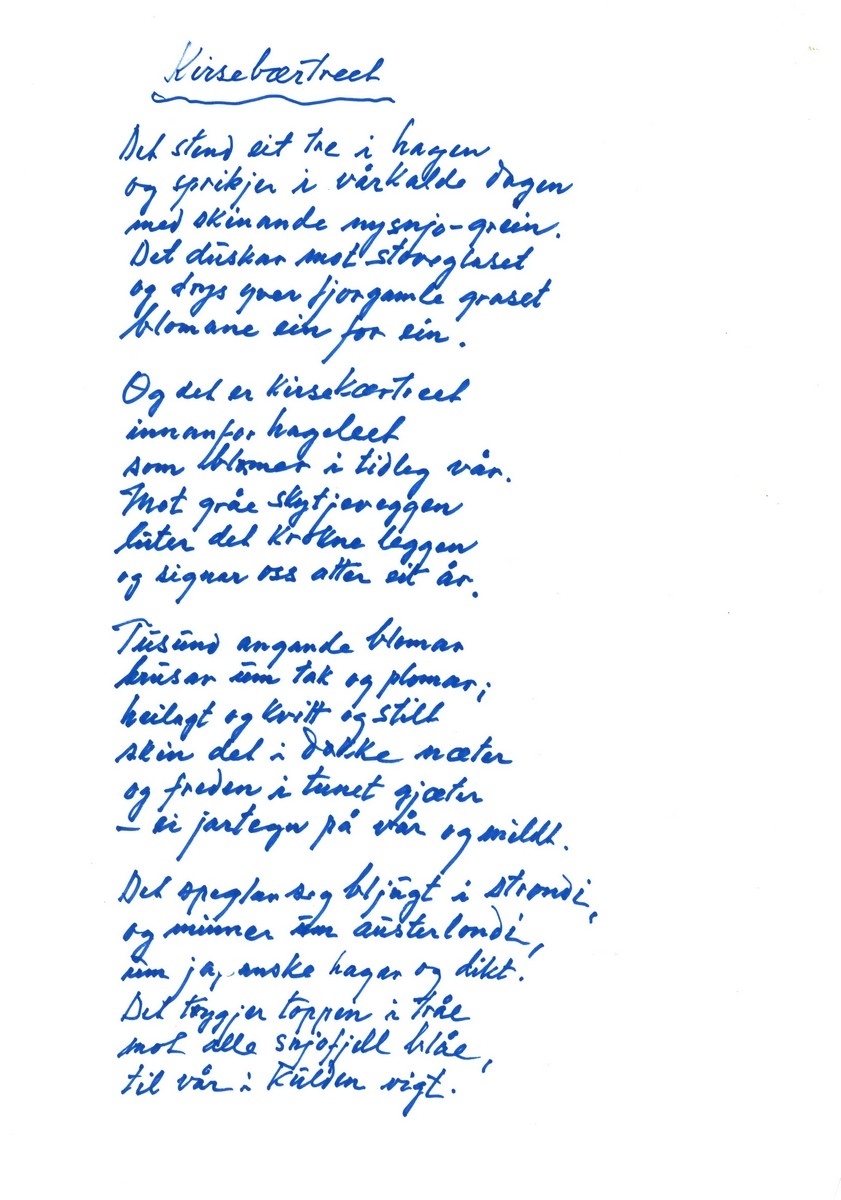 Kirsebærtreet
Det stend eit tre i hagen
og sprikjer i vårkalde dagen
med skinande nysnjo-grein.
Det duskar mot stoveglaset
og drys yver fjorgamle graset
blomane ein for ein.
Og det er kirsebærtreet
innanfor hageleet
som blømer i tidleg vår.
Mot gråe skytjeveggen
luter det krokne leggen
og signar oss atter eit år.
Tusund angande blomar
krusar um tak og plomar;
heilagt og kvitt og stilt
skin det i døkke næter
og freden i tunet gjæter
– ei jartegn på vår og mildt.
Det speglar seg bljugt i strondi,
og minner um austerlondi,
um japanske hagar og dikt.
Det tøygjer toppen i tråe
mot alle snjofjell blåe,
til vår i kulden vigt.